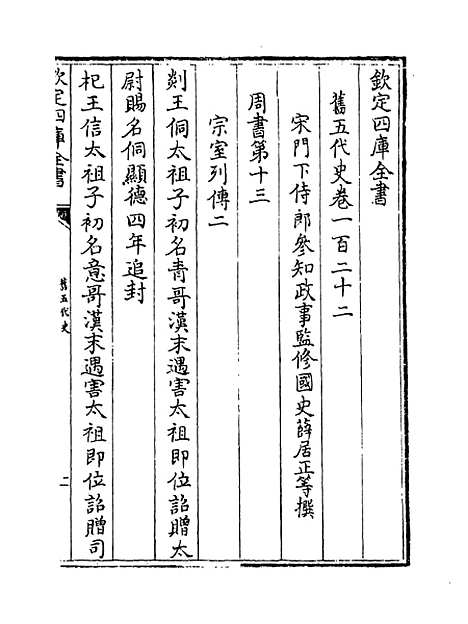 欽定四庫全書
舊五代史卷一百二十二
宋門下侍郎參知政事監修國史薛居正等撰
周書第十三
宗室列傳二
剡王侗太祖子初名青哥漢末遇害太祖即位詔贈太
尉賜名侗顯德四年追封
杞王信太祖子初名意哥漢末遇害太祖即位詔贈司
欽定四庫全書
舊五代史
二